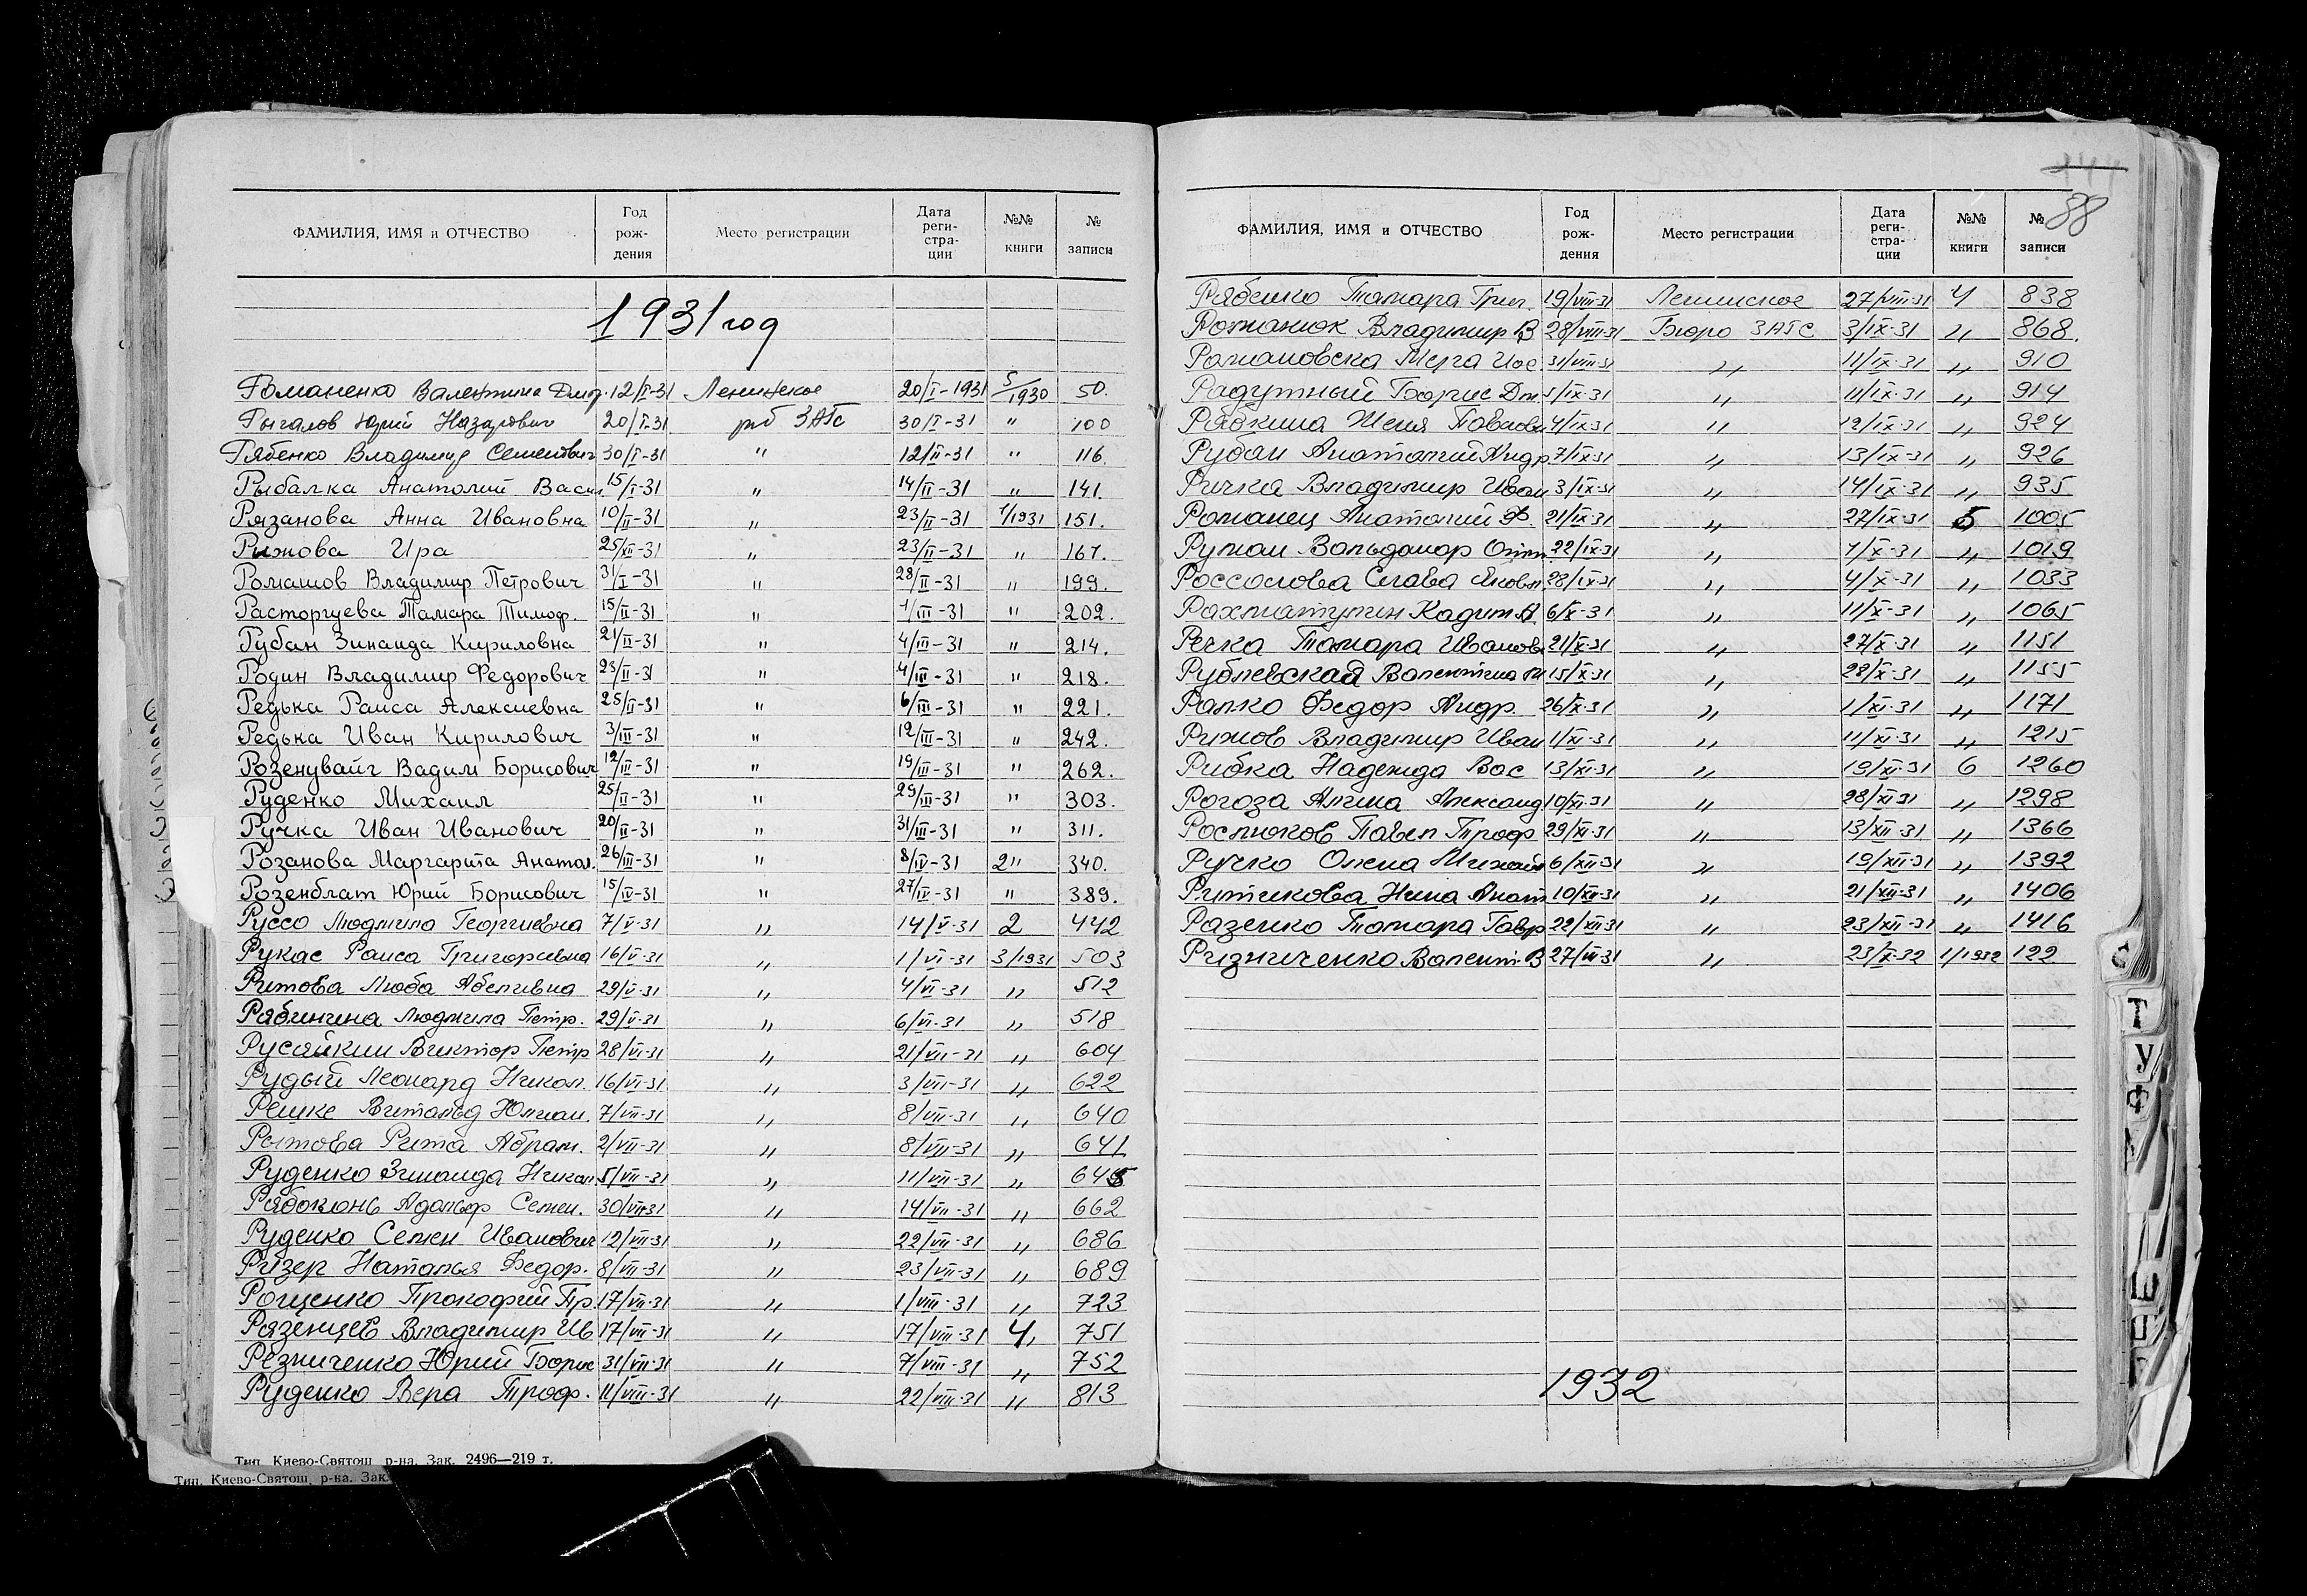 ФАМИЛИЯ, ИМЯ и ОТЧЕСТВО Год рождения Место регистрации Дата регистрации №№ книги № записи
1931 год
Романенко Валентина Дмр. 12/I-31 Ленинское 20/I-1931 5/1930 50.
Рыгалов Юрий Назарович 20/I-31 рб ЗАГС 30/I-31 " 100
Рябенко Владимир Семенович 30/I-31 " 12/II-31 " 116.
Рыбалка Анатолий Васил. 15/I-31 " 14/II-31 " 141.
Рязанова Анна Ивановна 10/II-31 " 23/II-31 1/1931 151.
Рижова Ира 25/XII-31 " 23/II-31 " 167.
Ромашов Владимир Петрович 31/I-31 " 28/II-31 " 199.
Расторгуева Тамара Тимоф. 15/II-31 " 1/III-31 " 202.
Рубан Зинаида Кириловна 21/II-31 " 4/III-31 " 214.
Родин Владимир Федорович 23/II-31 " 4/III-31 " 218.
Редька Раиса Алексиевна 25/II-31 " 6/III-31 " 221.
Редька Иван Кирилович 3/III-31 " 12/III-31 " 242.
Розенувайг Вадим Борисович 12/III-31 " 19/III-31 " 262.
Руденко Михаил 25/II-31 " 29/III-31 " 303.
Ручка Иван Иванович 20/II-31 " 31/III-31 " 311.
Розанова Маргарита Анатол. 26/III-31 " 8/IV-31 2" 340.
Розенблат Юрий Борисович 15/IV-31 " 27/IV-31 " 389.
Руссо Людмила Георгиевна 7/V-31 " 14/V-31 2 442
Рукас Раиса Григориевна 16/V-31 " 1/VI-31 3/1931 503
Ритова Люба Абелевна 29/V-31 " 4/VI-31 " 512
Рябинина Людмила Петр. 29/V-31 " 6/VI-31 " 518
Русяйкин Виктор Петр 28/VI-31 " 21/VII-31 " 604
Рудый Леонард Никол. 16/VI-31 " 3/VII-31 " 622
Решке Витольд Юлиан. 7/VII-31 " 8/VII-31 " 640
Ротова Рита Абрам. 2/VII-31 " 8/VII-31 " 641
Руденко Зинаида Никол 5/VII-31 " 11/VII-31 " 645
Рябоконь Адольф Семен. 30/VI-31 " 14/VII-31 " 662
Руденко Семен Иванович 12/VII-31 " 22/VII-31 " 686
Ризер Наталья Федор. 8/VII-31 " 23/VII-31 " 689
Рощенко Прокофий Пр. 17/VII-31 " 1/VIII-31 " 723
Рязенцев Владимир Ив 17/VII-31 " 17/VIII-31 4, 751
Резниченко Юрий Борис 31/VII-31 " 7/VIII-31 " 752
Руденко Вера Троф. 11/VIII-31 " 22/VIII-31 " 813
Тип. Киево-Святош. р-на. Зак. 2496—219 т.
Тип. Киево-Святош. р-на. Зак.
88
ФАМИЛИЯ, ИМЯ и ОТЧЕСТВО Год рождения Место регистрации Дата регистрации №№ книги № записи
Рябенко Тамара Григ. 19/VIII-31 Ленинское 27/VIII-31 4 838
Романюк Владимир В 28/VIII-31 Бюро ЗАГС 3/IX-31 " 868.
Рамановска Мерга Иос. 31/VIII-31 " 11/IX-31 " 910
Радутный Борис Дм. 5/IX-31 " 11/IX-31 " 914
Рябкина Женя Павловн 4/IX-31 " 12/IX-31 " 924
Рубан Анатолий Андр 7/IX-31 " 13/IX-31 " 926
Ричка Владимир Иван 3/IX-31 " 14/IX-31 " 935
Романец Анатолий Ф. 21/IX-31 " 27/IX-31 5 1005
Руман Вольдамор Отт. 22/IX-31 " 1/X-31 " 1019
Россолова Слава Яковл. 28/IX-31 " 4/X-31 " 1033
Рахматулин Кадим А. 6/X-31 " 11/X-31 " 1065
Речка Тамара Иванов 21/X-31 " 27/X-31 " 1151
Рублевская Валентина 15/X-31 " 28/X-31 " 1155
Ралко Федор Андр. 26/X-31 " 1/XI-31 " 1171
Рижов Владимир Иван 1/XI-31 " 11/XI-31 " 1215
Рибка Надежда Вас 13/XI-31 " 19/XI-31 6 1260
Рогоза Алина Александ 10/XI-31 " 28/XI-31 " 1298
Роснюков Павел Троф 29/XI-31 " 13/XII-31 " 1366
Ручко Олена Михайл 6/XII-31 " 19/XII-31 " 1392
Ритикова Нина Анат 10/XII-31 " 21/XII-31 " 1406
Разенко Тамара Гавр 22/XII-31 " 23/XII-31 " 1416
Ризниченко Валент. В 27/VII-31 " 23/X-32 1/1932 122
1932
С
Т
У
Ф
Ш